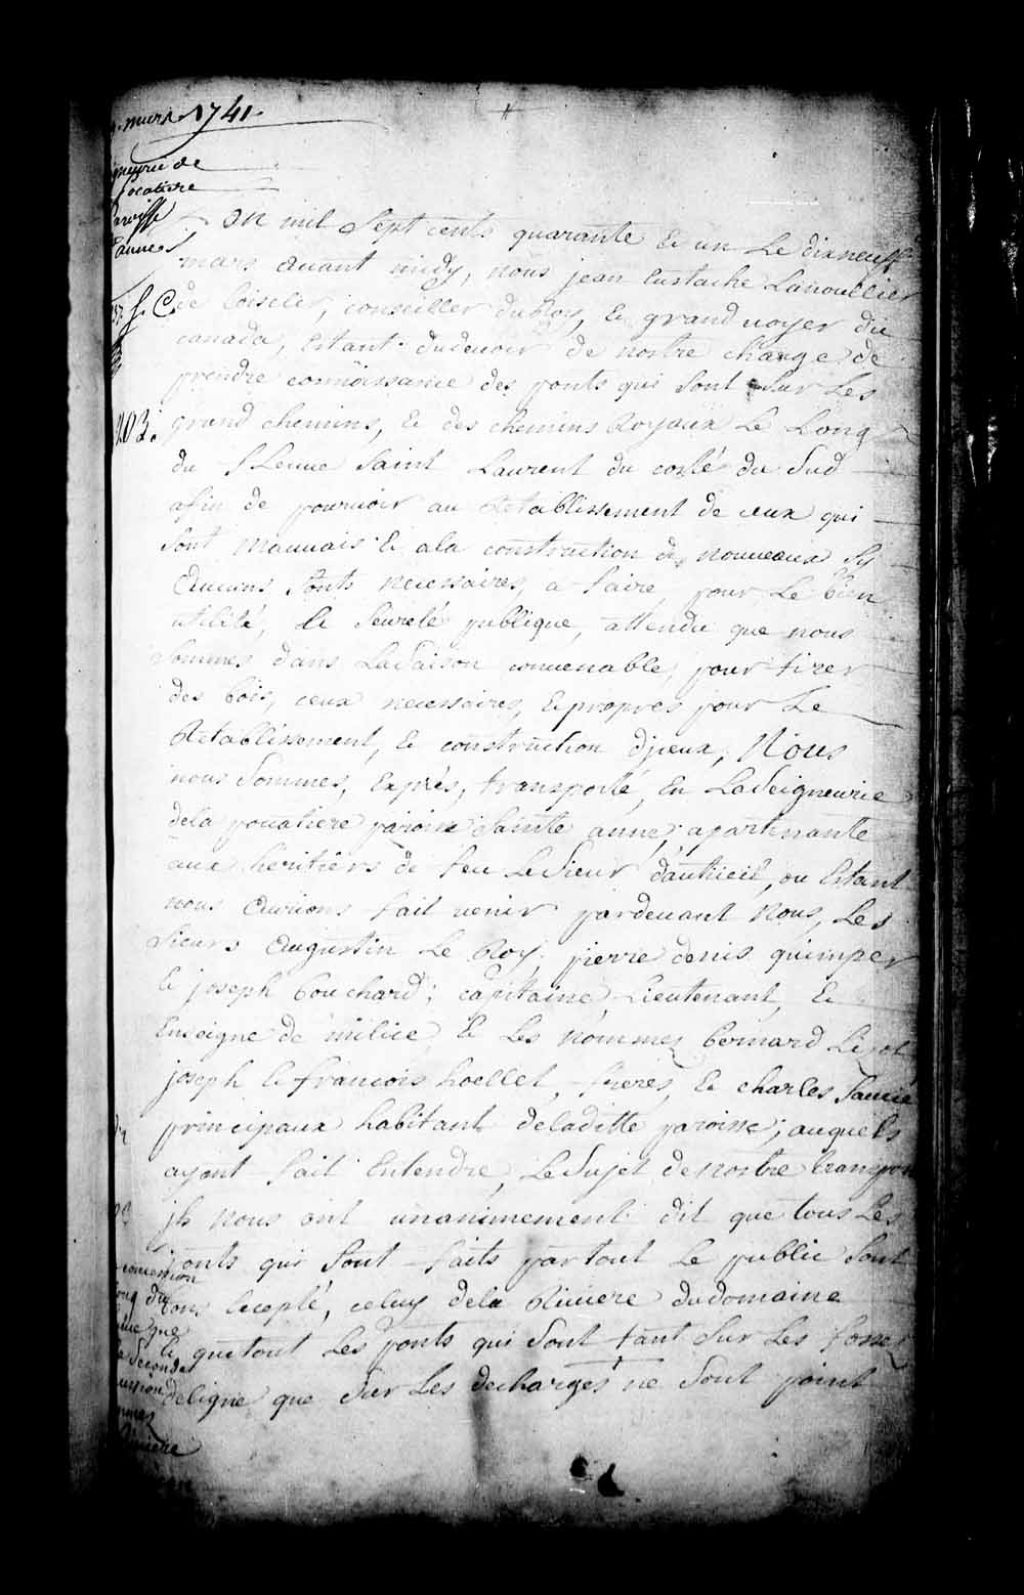 mars 1741.
gneurie de
pocatiere
aroisse
anne
f. C.
203.
On mil sept cents quarante & un Le dixneuf
mars avant midy, nous jean Eustache Lanoullier
de boisclr, conseiller du Roy, & grand voyer de
canada, Estant du devoir de nostre charge de
prendre connoissance des ponts qui sont sur Les
grand chemins, & des chemins Royaux Le Long
du fleuve saint Laurent du costé du sud
afin de pourvoir au Retablissement de ceux qui
sont mauvais & ala construction de nouveaux sy
aucuns sont necessaires, a faire, pour Le bien
utilité, & seureté publique, attendu que nous
sommes dans La saison convenable, pour tirer
des bois, ceux necessaires, & propres pour Le
Retablissement, & construction djceux, Nous
nous sommes, Exprés, transporté, En La Seigneurie
dela pocatiere paroisse sainte anne, apartenante
aux heritiers de feu Le Sieur dauteüil, ou Estant
nous aurions fait venir pardevant Nous, Les
Sieurs augustin Le Roy, pierre denis quimper
& joseph bouchard; capitaine, Lieutenant, &
Enseigne de milice, & Les Nommez bernard Lizot
joseph & francois hoellet, freres, & charles
principaux habitant deladitte paroisse; auquels
ayant fait Entendre, Le sujet de nostre transport
jls nous ont unanimement dit que tous Les
ponts qui sont faits partout Le public sont
bons Excepté, celuy dela Riviere du domaine
& que tout Les ponts qui sont tant sur Les fossez
deligne que sur Les decharges ne sont point
concession
que
seconde
Riviere